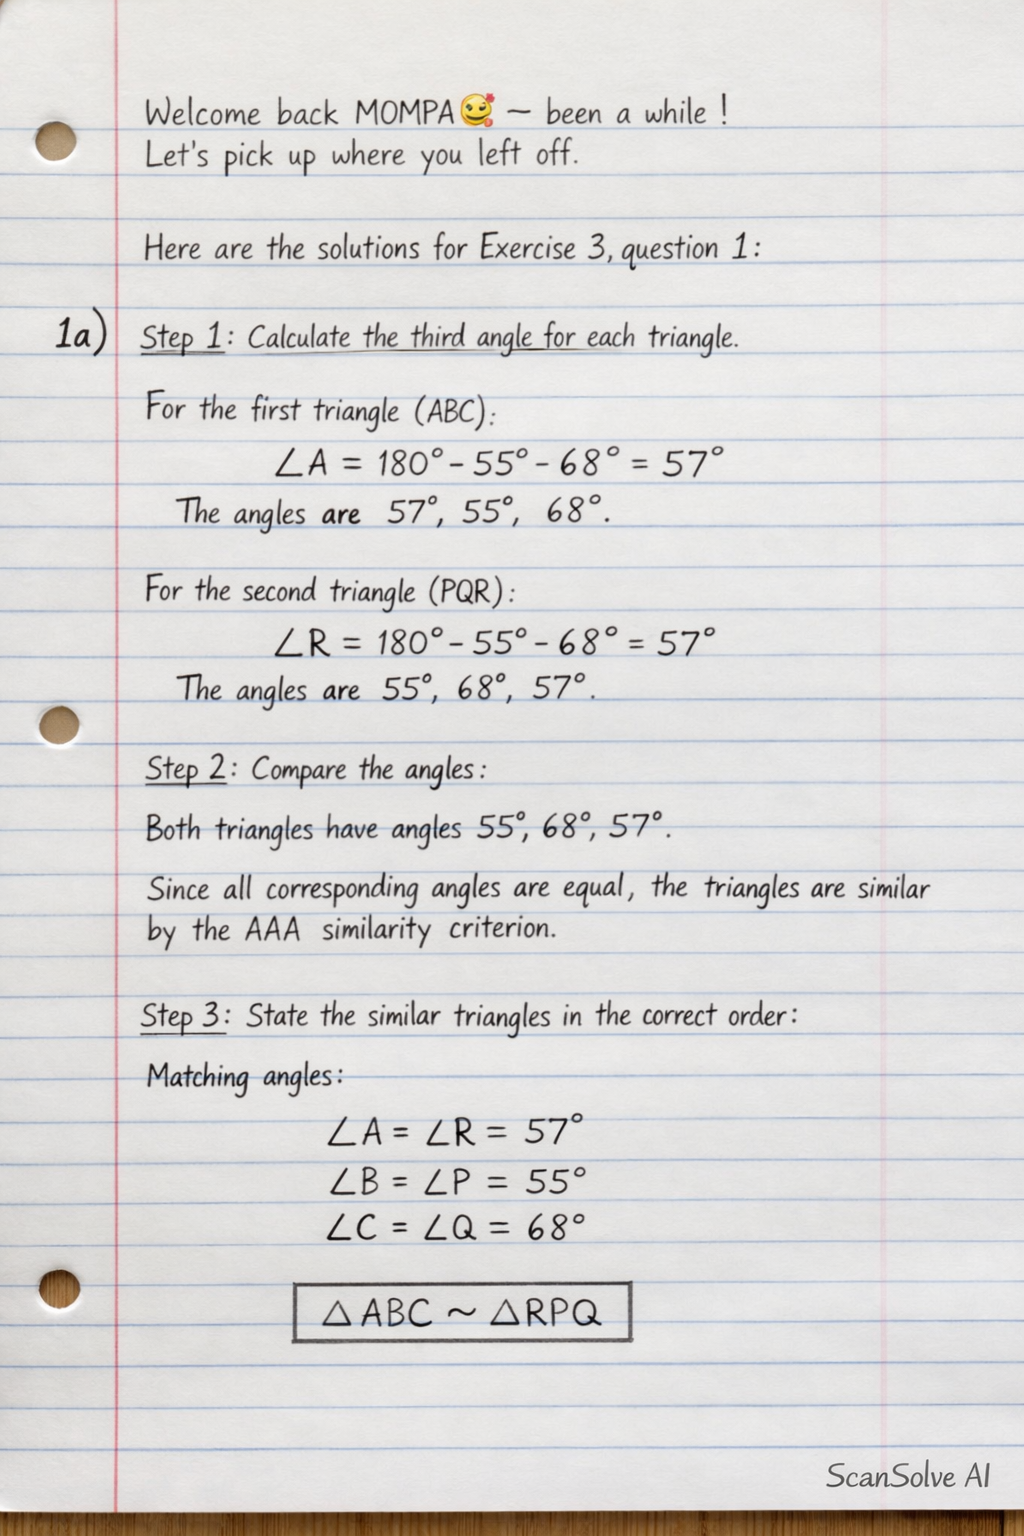 Welcome back MOMPA🥰 – been a while !
Let's pick up where you left off.
Here are the solutions for Exercise 3, question 1:
1a) Step 1: Calculate the third angle for each triangle.
For the first triangle (ABC):
∠A = 180° - 55° - 68° = 57°
The angles are 57°, 55°, 68°.
For the second triangle (PQR):
∠R = 180° - 55° - 68° = 57°
The angles are 55°, 68°, 57°.
Step 2: Compare the angles:
Both triangles have angles 55°, 68°, 57°.
Since all corresponding angles are equal, the triangles are similar
by the AAA similarity criterion.
Step 3: State the similar triangles in the correct order:
Matching angles:
∠A = ∠R = 57°
∠B = ∠P = 55°
∠C = ∠Q = 68°
△ABC ~ △RPQ
ScanSolve AI